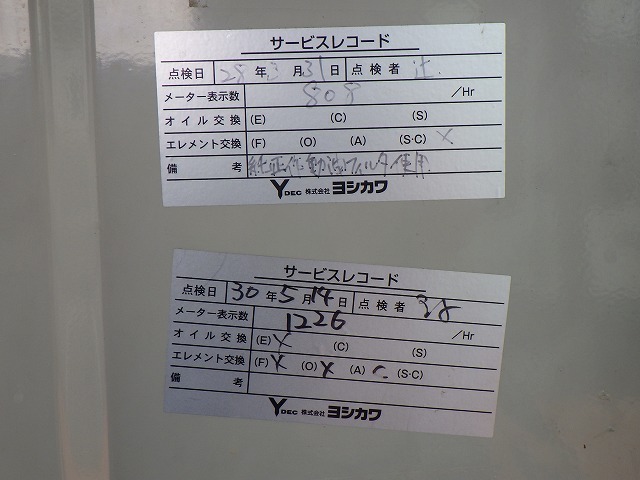 サービスレコード
点検日 28年3月31日 点検者 辻
メーター表示数 808 /Hr
オイル交換 (E) (C) (S)
エレメント交換 (F) (O) (A) (S·C) ×
備考 純正作動油フィルタ使用
YDEC 株式会社 ヨシカワ
サービスレコード
点検日 30年5月14日 点検者
メーター表示数 1226 /Hr
オイル交換 (E) × (C) (S)
エレメント交換 (F) × (O) × (A) (S·C)
備考
YDEC 株式会社 ヨシカワ